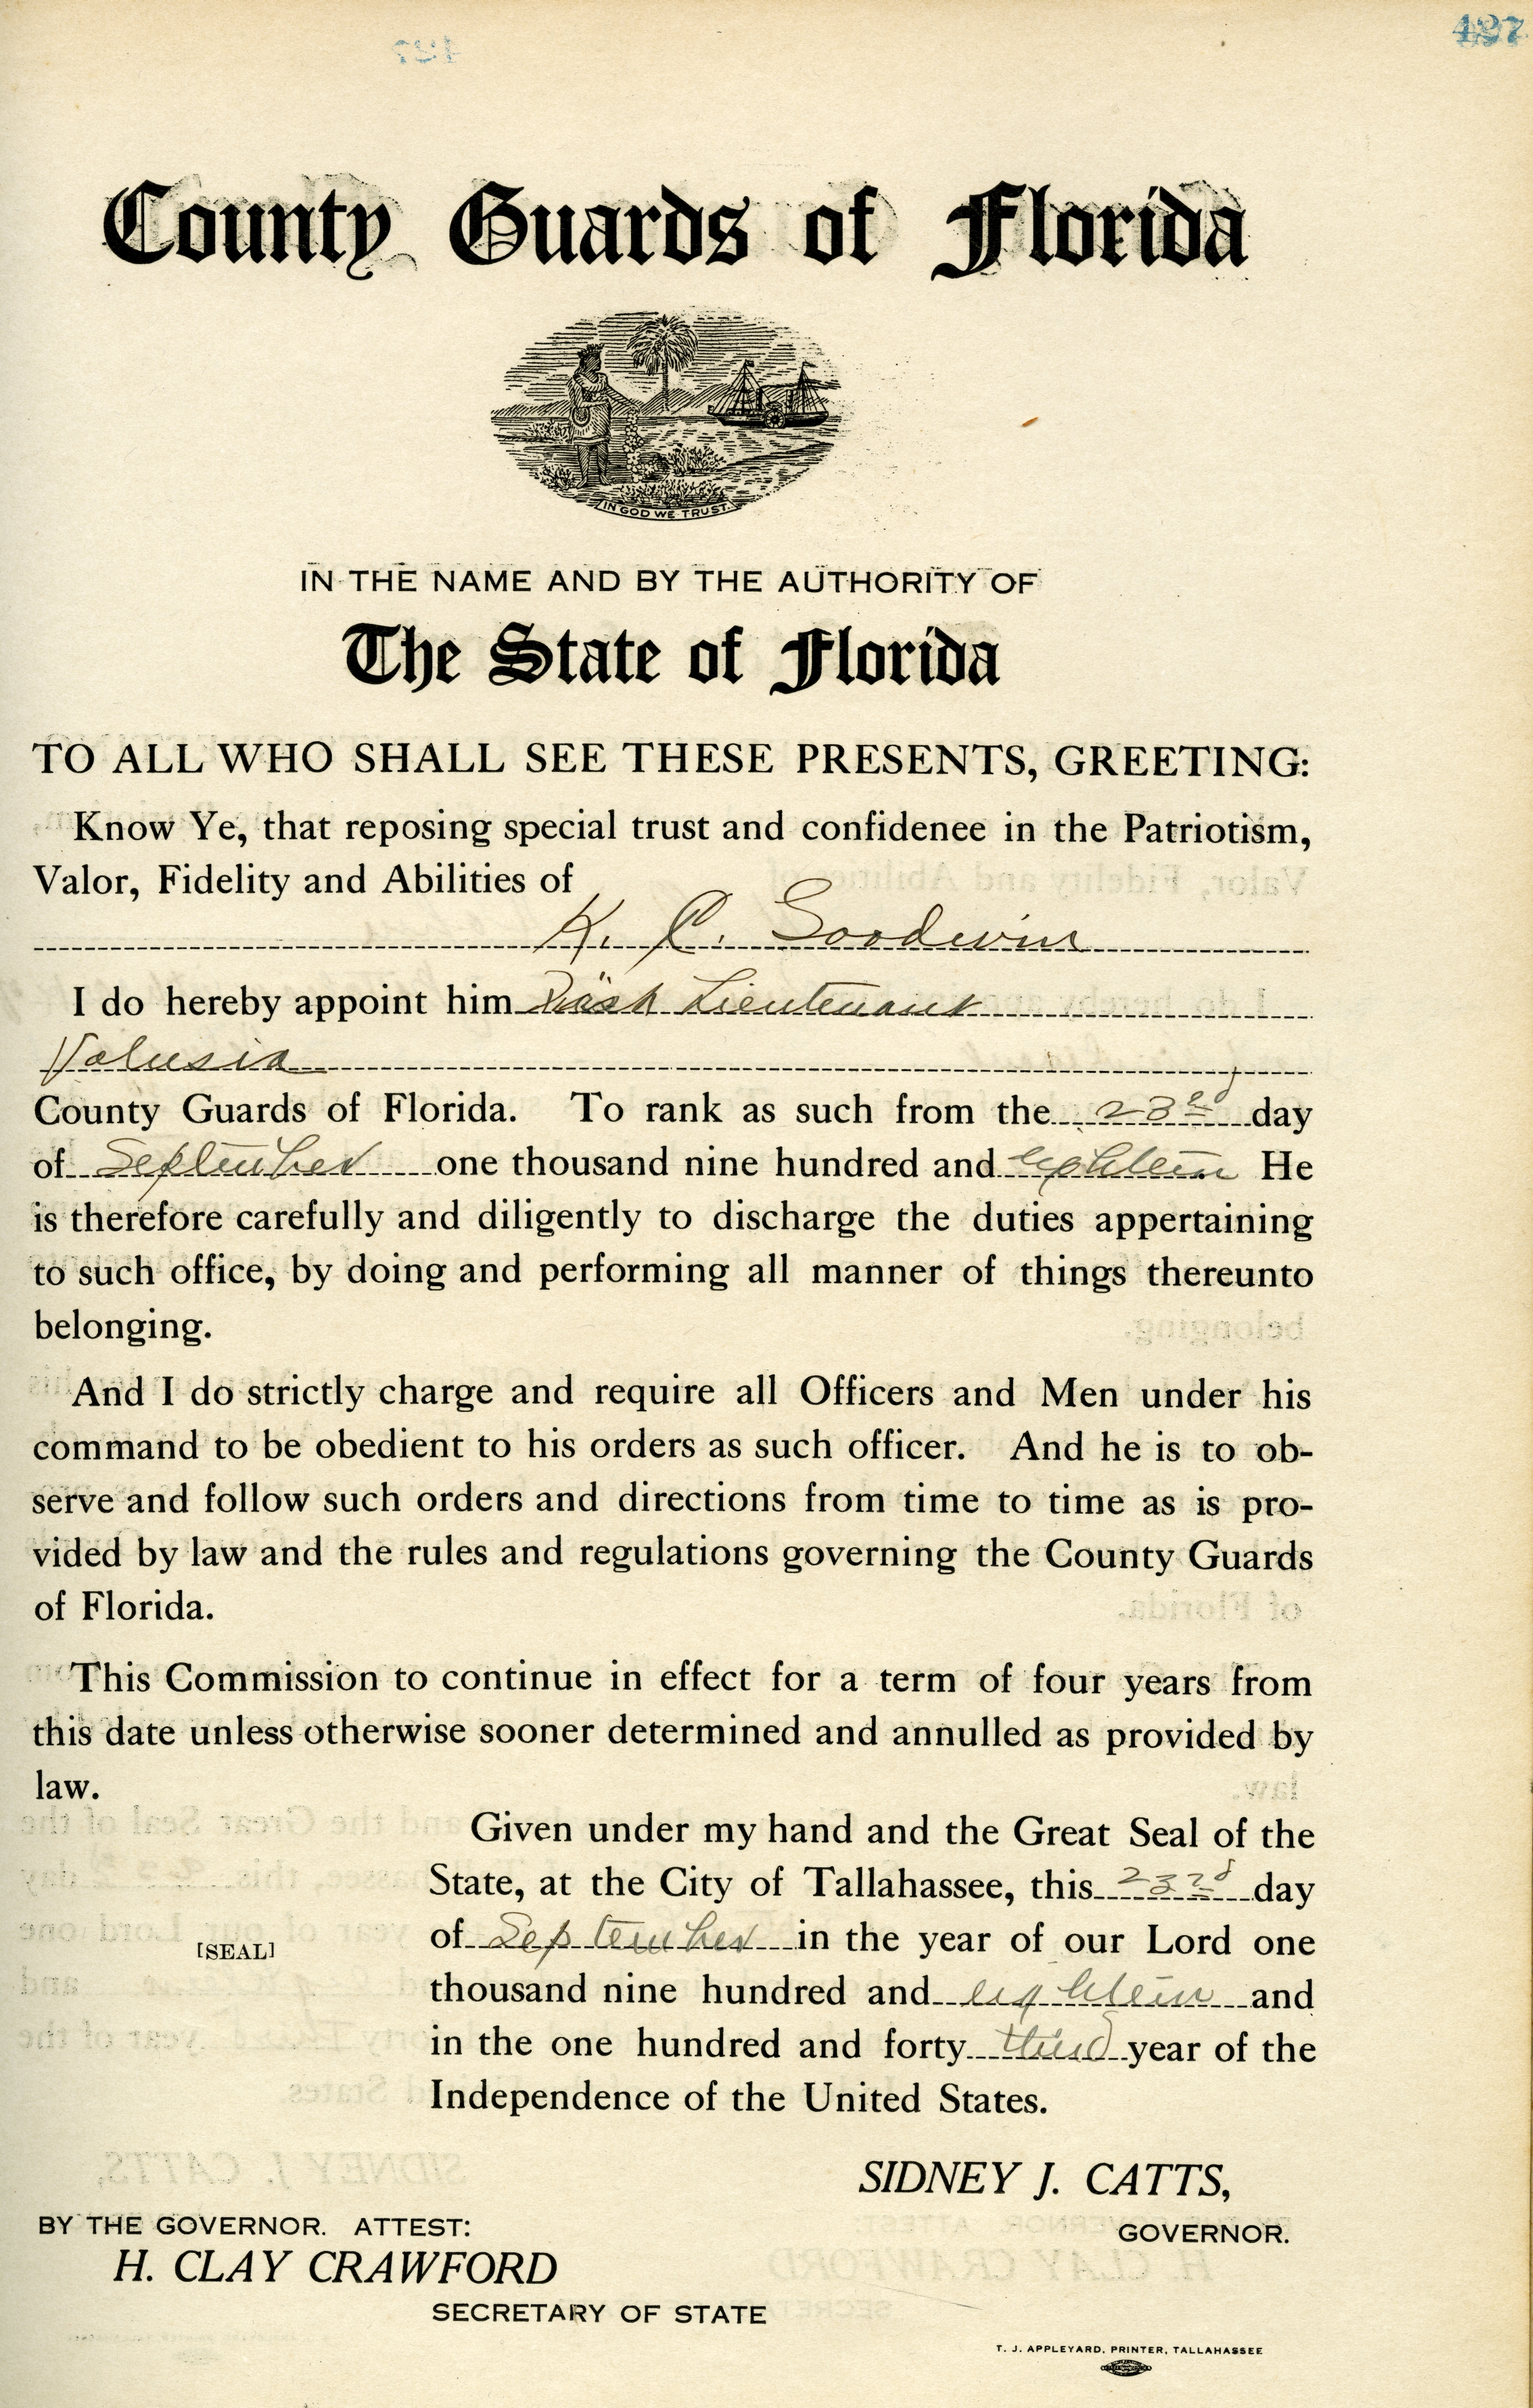 497
County Guards of Florida
IN GOD WE TRUST.
IN THE NAME AND BY THE AUTHORITY OF
The State of Florida
TO ALL WHO SHALL SEE THESE PRESENTS, GREETING:
Know Ye, that reposing special trust and confidenee in the Patriotism,
Valor, Fidelity and Abilities of
K. C. Goodwin
I do hereby appoint him Lieutenant
Volusia
County Guards of Florida. To rank as such from the 23rd day
of September one thousand nine hundred and eighteen He
is therefore carefully and diligently to discharge the duties appertaining
to such office, by doing and performing all manner of things thereunto
belonging.
And I do strictly charge and require all Officers and Men under his
command to be obedient to his orders as such officer. And he is to ob-
serve and follow such orders and directions from time to time as is pro-
vided by law and the rules and regulations governing the County Guards
of Florida.
This Commission to continue in effect for a term of four years from
this date unless otherwise sooner determined and annulled as provided by
law.
Given under my hand and the Great Seal of the
State, at the City of Tallahassee, this 23rd day
of September in the year of our Lord one
[SEAL]
thousand nine hundred and eighteen and
in the one hundred and forty third year of the
Independence of the United States.
SIDNEY J. CATTS,
GOVERNOR.
BY THE GOVERNOR. ATTEST:
H. CLAY CRAWFORD
SECRETARY OF STATE
T. J. APPLEYARD, PRINTER, TALLAHASSEE